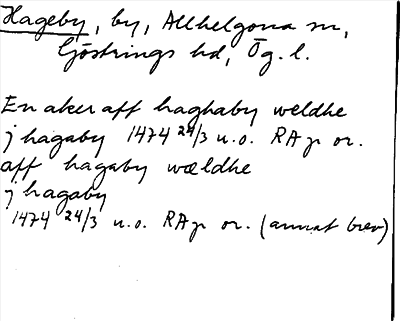 Hageby, by, Allhelgona sn,
Göstrings hd, Ög. l.
En aker aff haghaby weldhe
j hagaby 1474 24/3 u.o. RAp or.
aff hagaby wældhe
j hagaby
1474 24/3 u.o. RAp or. (annat brev)